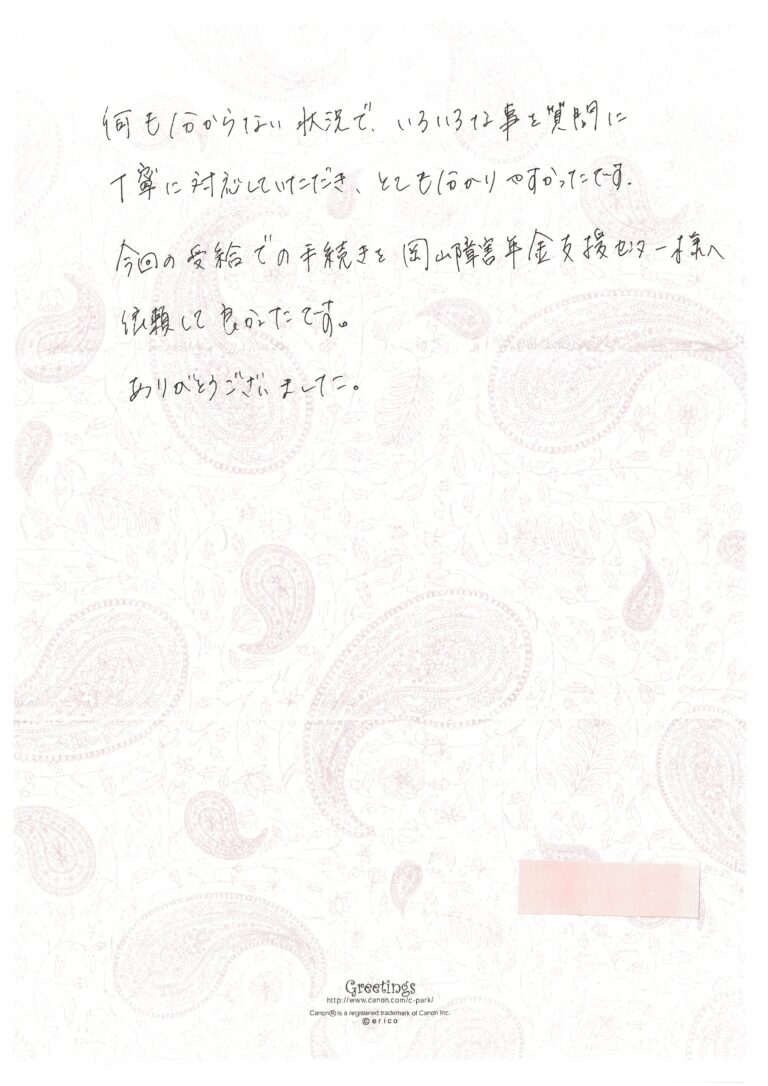 何も分からない状況で、いろいろな事を質問に
丁寧に対応していただき、とても分かりやすかったです.
今回の受給での手続きを岡山障害年金支援センター様へ
依頼して良かったです。
ありがとうございました。
Greetings
http://www.canon.com/c-park/
Canon® is a registered trademark of Canon Inc.
© erico